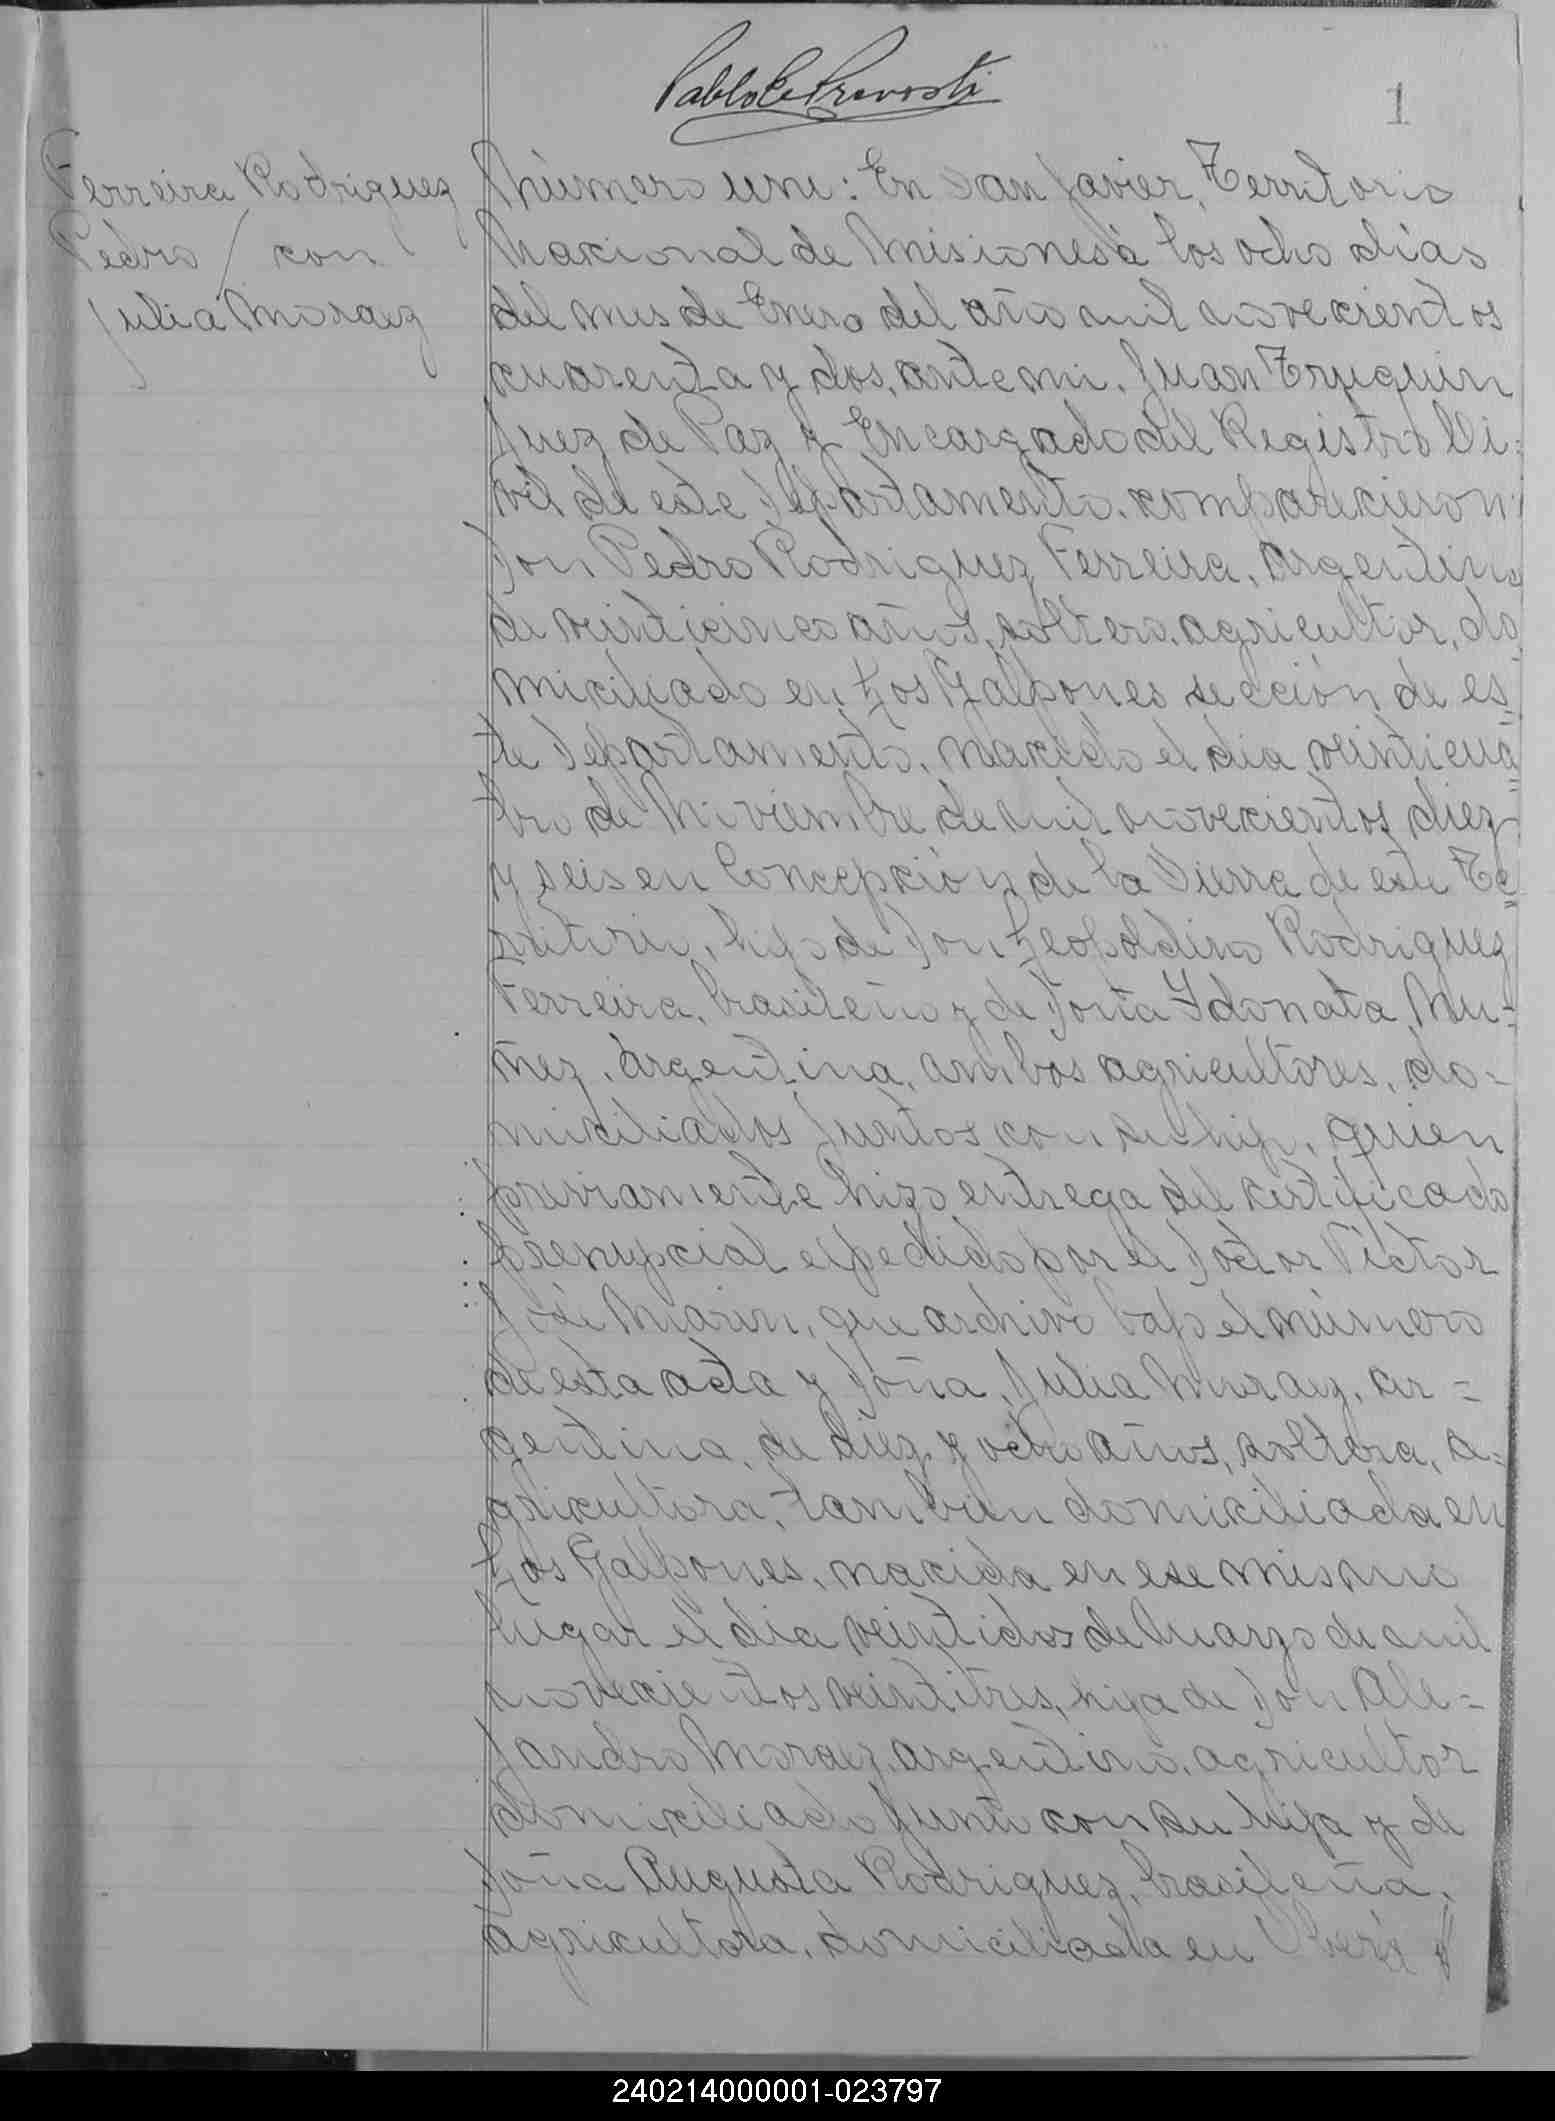 Pablo C. Prevosti
1
Ferreira Rodriguez
Pedro / con
Julia Moraez
Número uno: En San Javier, Territorio
Nacional de Misiones a los ocho días
del mes de Enero del año mil novecientos
cuarenta y dos, ante mi, Juan Truquin
Juez de Paz y Encargado del Registro Ci=
vil de este Departamento, comparecieron:
Don Pedro Rodriguez Ferreira, argentino
de veinticinco años, soltero, agricultor, do
miciliado en Los Galpones sección de es=
te Departamento, nacido el dia veinticua=
tro de Noviembre de mil novecientos diez
y seis en Concepción de la Sierra de este Te=
rritorio, hijo de Don Leopoldino Rodriguez
Ferreira, brasileño y de Doña Idonata Nu=
ñez, argentina, ambos agricultores, do=
miciliados juntos con su hijo, quien
previamente hizo entrega del certificado
prenupcial expedido por el Doctor Victor
José Marin, que archivo bajo el número
de esta acta y Doña Julia Moraez, ar=
gentina, de diez y ocho años, soltera, a=
gricultora, tambien domiciliada en
Los Galpones, nacida en ese mismo
lugar el dia veintidos de Marzo de mil
novecientos veintitres, hija de Don Ale=
jandro Moraez, argentino, agricultor
domiciliado junto con su hija y de
Doña Augusta Rodriguez, brasileña,
agricultora, domiciliada en Oberá
240214000001-023797